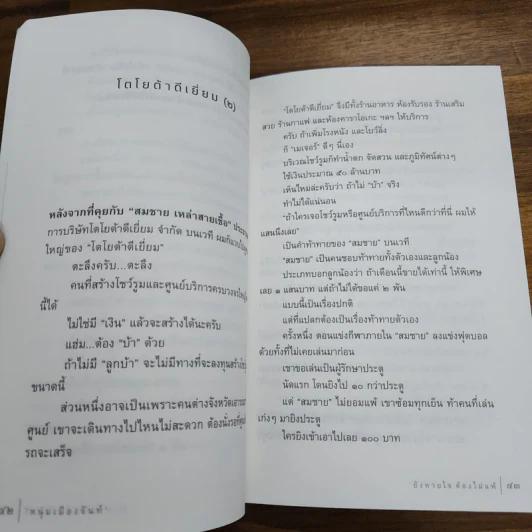 โตโยต้าดีเยี่ยม (๒)
หลังจากที่คุยกับ "สมชาย เหล่าสายเชื้อ"
การบริษัทโตโยต้าดีเยี่ยม จำกัด บนเวที
ใหญ่ของ "โตโยต้าดีเยี่ยม"
ตะลึงครับ...ตะลึง
คนที่สร้างโชว์รูมและศูนย์บริการครบวงจร
นี้ได้
ไม่ใช่มี "เงิน" แล้วจะสร้างได้นะครับ
แฮ่ม...ต้อง "บ้า" ด้วย
ถ้าไม่มี "ลูกบ้า" จะไม่มีทางที่จะลงทุนสร้าง
ขนาดนี้
ส่วนหนึ่งอาจเป็นเพราะคนต่างจังหวัด
ศูนย์ เขาจะเดินทางไปไหนไม่สะดวก ต้องนั่งรอ
รถจะเสร็จ
๔๒ | "หนุ่มเมืองจันท์"
"โตโยต้าดีเยี่ยม" จึงมีทั้งร้านอาหาร ห้องรับรอง ร้านเสริม
สวย ร้านกาแฟ และห้องคาราโอเกะ ฯลฯ ให้บริการ
ครับ ถ้าเพิ่มโรงหนัง และโบว์ลิ่ง
ก็ "เมเจอร์" ดีๆ นี่เอง
บริเวณโชว์รูมก็ทำน้ำตก จัดสวน และภูมิทัศน์ต่างๆ
ใช้เงินประมาณ ๕๐ ล้านบาท
เห็นไหมล่ะครับว่า ถ้าไม่ "บ้า" จริง
ทำไม่ได้แน่นอน
"ถ้าใครเจอโชว์รูมหรือศูนย์บริการที่ไหนดีกว่าที่นี่ ผมให้
แสนนึงเลย"
เป็นคำท้าทายของ "สมชาย" บนเวที
"สมชาย" เป็นคนชอบท้าทายทั้งตัวเองและลูกน้อง
ประเภทบอกลูกน้องว่า ถ้าเดือนนี้ขายได้เท่านี้ ให้พิเศษ
เลย ๑ แสนบาท แต่ถ้าไม่ได้ขอแค่ ๒ พัน
แบบนี้เป็นเรื่องปกติ
แต่ที่แปลกต้องเป็นเรื่องท้าทายตัวเอง
ครั้งหนึ่ง ตอนแข่งกีฬาภายใน "สมชาย" ลงแข่งฟุตบอล
ด้วยทั้งที่ไม่เคยเล่นมาก่อน
เขาขอเล่นเป็นผู้รักษาประตู
นัดแรก โดนยิงไป ๑๐ กว่าประตู
แต่ "สมชาย" ไม่ยอมแพ้ เขาซ้อมทุกเย็น ท้าคนที่เล่น
เก่งๆ มายิงประตู
ใครยิงเข้าเอาไปเลย ๑๐๐ บาท
ยังหายใจ ต้องไม่แพ้ | ๔๓